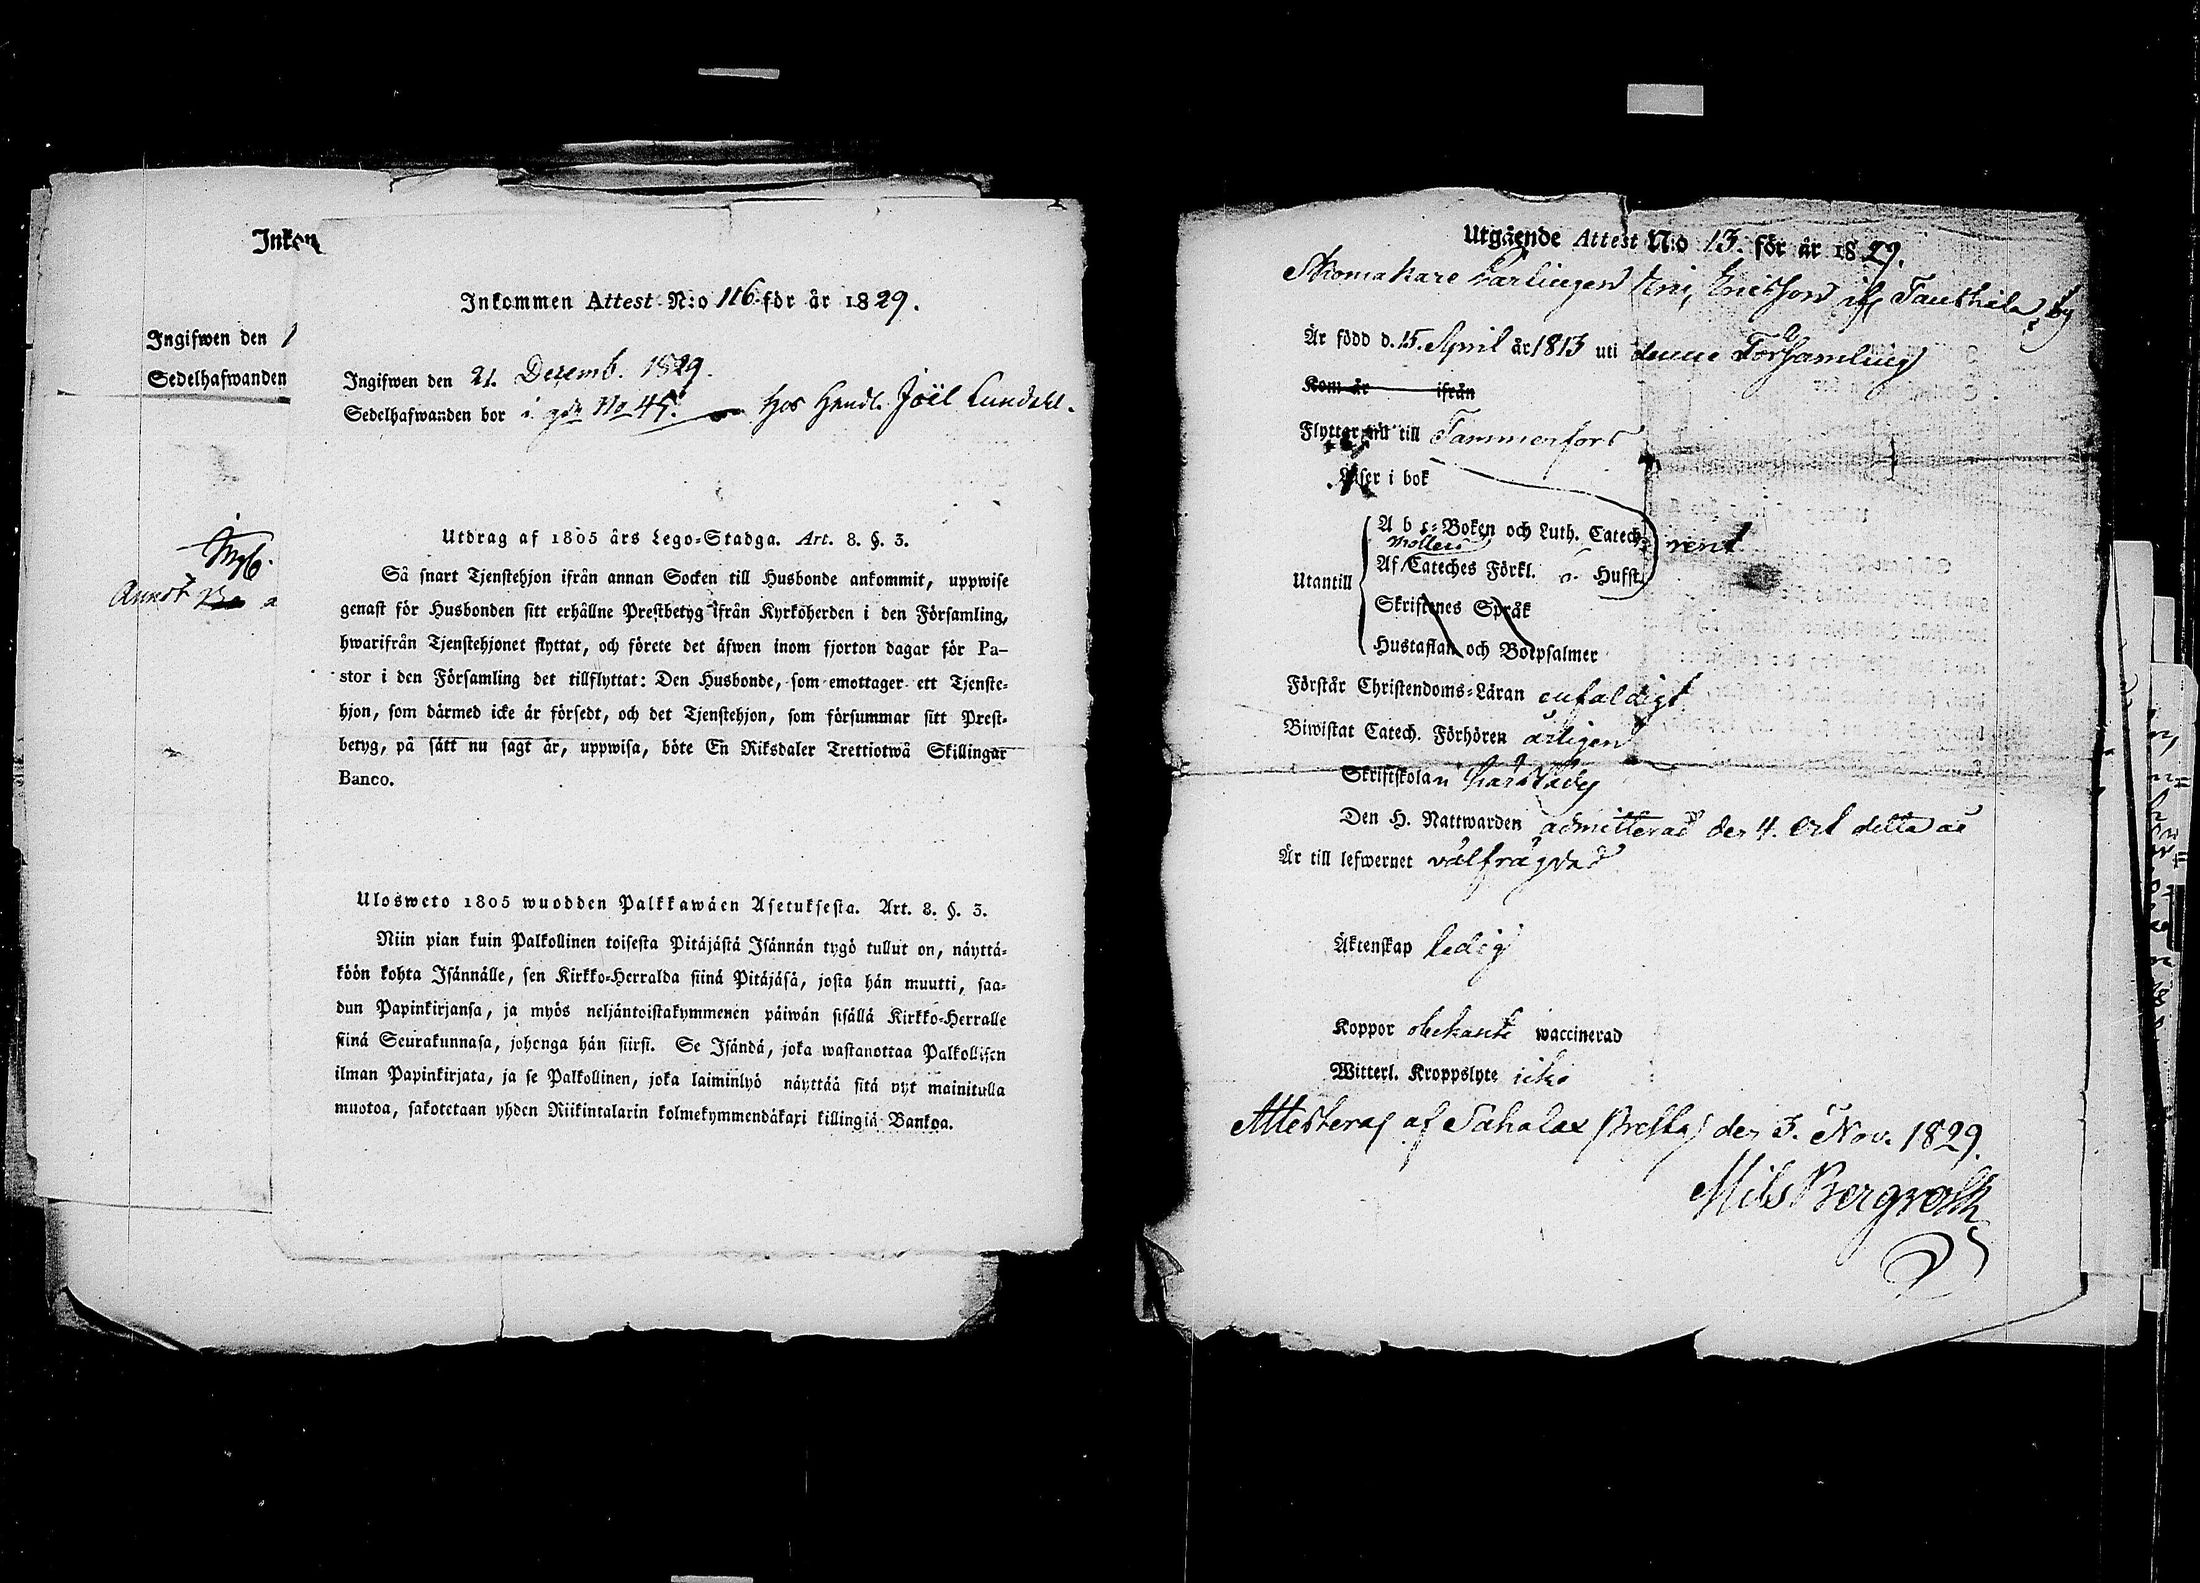 Inkom
Ingifwen den 1
Sedelhafwanden
Annot
Inkommen Attest N:o 116 för år 1829.
Ingifwen den 21. Decemb. 1829.
Sedelhafwanden bor i gdn No 45. hos Handl. Joël Lundahl.
Utdrag af 1805 års Lego-Stadga. Art. 8. §. 3.
Så snart Tjenstehjon ifrån annan Socken till Husbonde ankommit, uppwise
genast för Husbonden sitt erhållne Prestbetyg ifrån Kyrkoherden i den Församling,
hwarifrån Tjenstehjonet flyttat, och förete det äfwen inom fjorton dagar för Pa-
stor i den Församling det tillflyttat: Den Husbonde, som emottager ett Tjenste-
hjon, som därmed icke är försedt, och det Tjenstehjon, som försummar sitt Prest-
betyg, på sätt nu sagt är, uppwisa, böte En Riksdaler Trettiotwå Skillingar
Banco.
Ulosweto 1805 wuodden Palkkawäen Asetuksesta. Art. 8. §. 3.
Niin pian kuin Palkollinen toisesta Pitäjästä Isännän tygö tullut on, näyttä-
köön kohta Isännälle, sen Kirkko-Herralda siinä Pitäjäsä, josta hän muutti, saa-
dun Papinkirjansa, ja myös neljäntoistakymmenen päiwän sisällä Kirkko-Herralle
siinä Seurakunnasa, johonga hän siirsi. Se Isändä, joka wastanottaa Palkollisen
ilman Papinkirjata, ja se Palkollinen, joka laiminlyö näyttää sitä nyt mainitulla
muotoa, sakotetaan yhden Riikintalarin kolmekymmendäkaxi killingiä Bankoa.
Utgående Attest N:o 13. för år 1829.
Skomakare Lärlingen Erik Ericsson ifr. Taustiala by
Är född d. 15. April år 1813 uti denne Församling
Kom år ifrån
Flyttar nu till Tammerfors
Läser i bok
Utantill
A b c-Boken och Luth. Catech.
Möllers
Af Cateches Förkl. o. Hufst.
rent
Skriftenes Språk
Hustaflan och Botpsalmer
Förstår Christendoms-Läran enfaldigt
Biwistat Catech. Förhören årligen
Skriftskolan
Den H. Nattwarden admitterad den 4. Oct detta år
Är till lefwernet välfrägdad
Äktenskap ledig
Koppor obekante waccinerad
Witterl. Kroppslyte icke
Attesteras af Sahalax Prestg. den 3. Nov. 1829.
Nils Bergroth